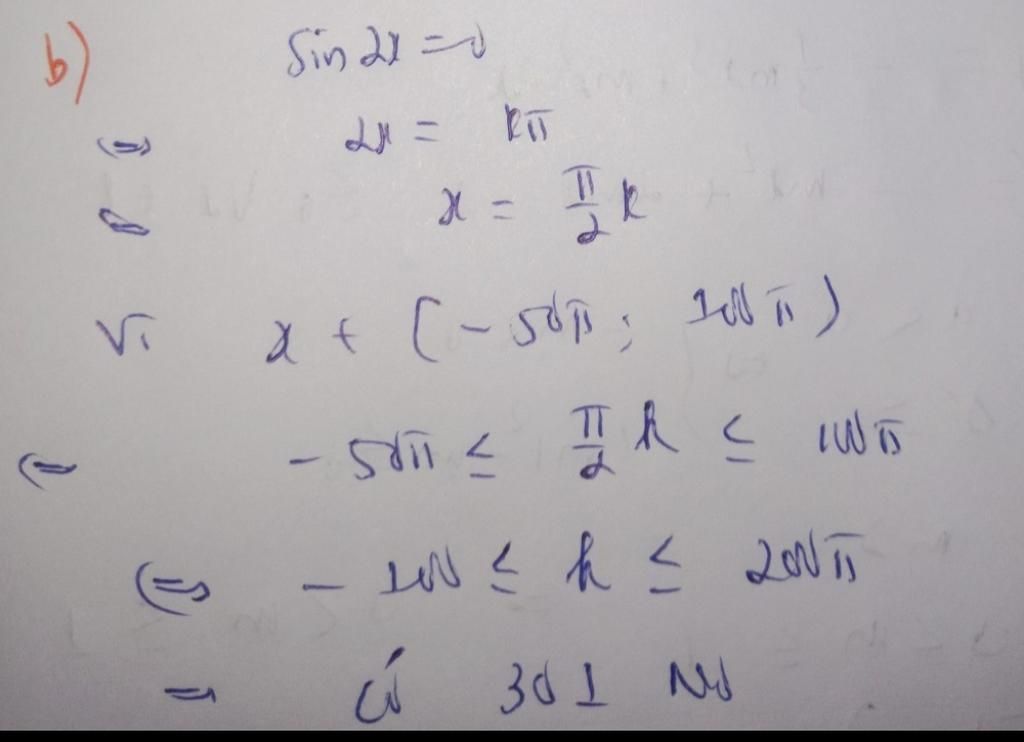 b) sin 2x = 0
(=) 2x = kπ
(=) x = π/2 k
Vì x ∈ (-50π; 100π)
(=) -50π ≤ π/2 k ≤ 100π
(=) -100 ≤ k ≤ 200π
= Có 301 No